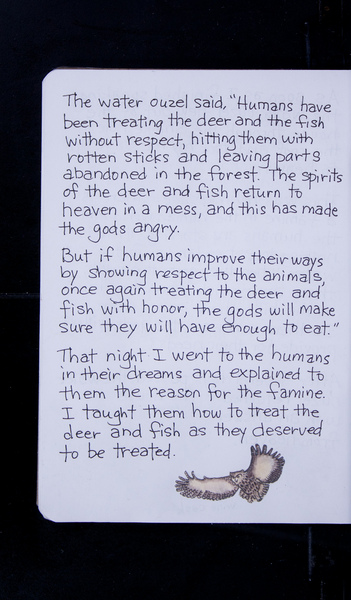 The water ouzel said, "Humans have
been treating the deer and the fish
without respect, hitting them with
rotten sticks and leaving parts
abandoned in the forest. The spirits
of the deer and fish return to
heaven in a mess, and this has made
the gods angry.
But if humans improve their ways
by showing respect to the animals,
once again treating the deer and
fish with honor, the gods will make
sure they will have enough to eat."
That night I went to the humans
in their dreams and explained to
them the reason for the famine.
I taught them how to treat the
deer and fish as they deserved
to be treated.